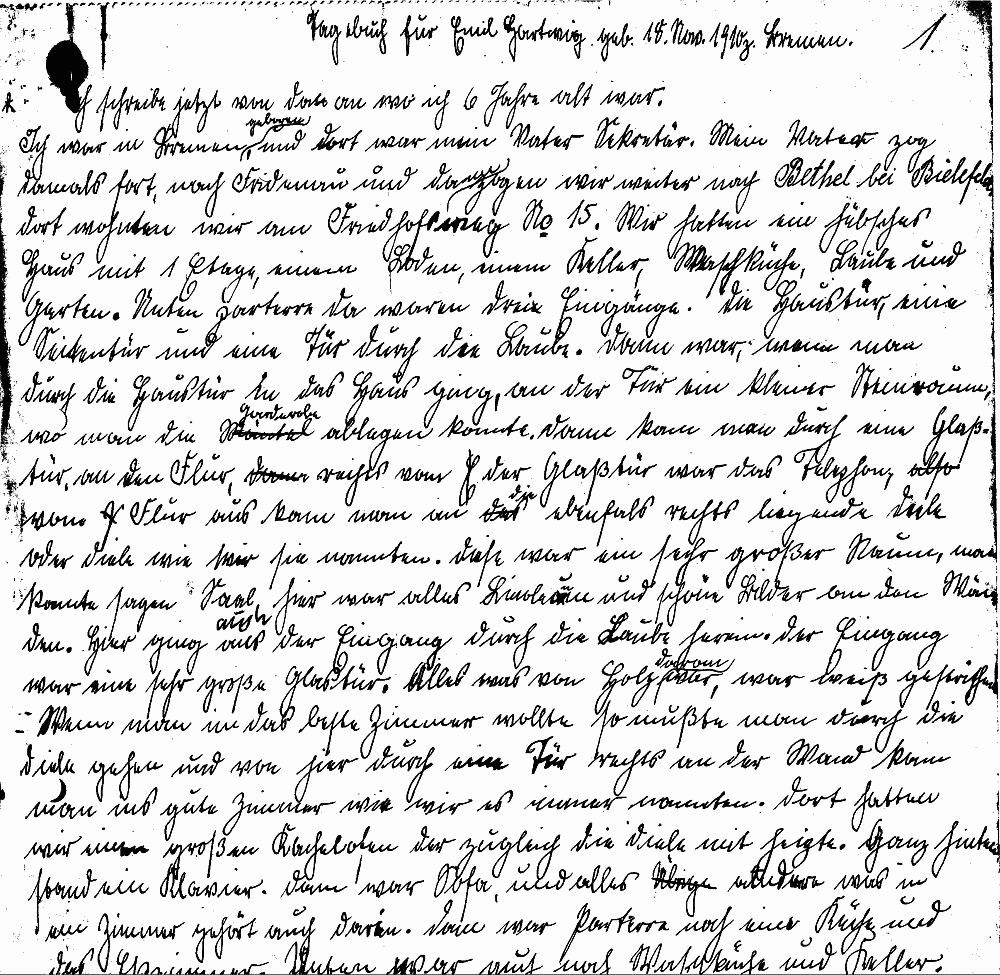 Tagebuch für Emil Hartwig geb. 18. Nov. 1910 z. Bremen. 1.
Ich schreibe jetzt von dan an wo ich 6 Jahre alt war.
geboren
Ich war in Bremen, und dort war mein Vater Sekretär. Mein Vater zog
damals fort, nach Fridenau und da zogen wir weiter nach Bethel bei Bielefeld
dort wohnten wir am Friedhofsweg No 15. Wir hatten ein hübsches
Haus mit 1 Etage, einem Boden, einem Keller, Waschküche, Laube und
Garten. Unten parterre da waren drei Eingänge. Die Haustür, eine
Seitentür und eine Tür durch die Laube. Dann war, wenn man
durch die Haustür in das Haus ging, an der Tür ein kleiner Steinraum,
Garderobe
wo man die Mäntel ablegen konnte. Dann kam man durch eine Glaß-
tür, an den Flur, dann rechts vom der Glaßtür war das Telephon, also
die
vom Flur aus kam man an das ebenfals rechts liegende Diele
oder Diele wie wir sie nannten. Diese war ein sehr großer Raum, man
konnte sagen Saal, hier war alles Linoleum und schöne Bilder an den Wän
auch
den. Hier ging aus der Eingang durch die Laube herein. Der Eingang
daran
war eine sehr große Glastür. Alles was von Holz war, war weiß gestrichen
- Wenn man in das beste Zimmer wollte so mußte man durch die
Diele gehen und von hier durch eine Tür rechts an der Wand kam
man ins gute Zimmer wie wir es immer nannten. Dort hatten
wir einen großen Kachelofen der zugleich die Diele mit heizte. Ganz hinten
stand ein Klavier. Dann war Sofa, und alles andere was in
ein Zimmer gehört auch darin. Dann war Parterre noch eine Küche und
das Eßzimmer. Unten war auch noch Waschküche und Keller.